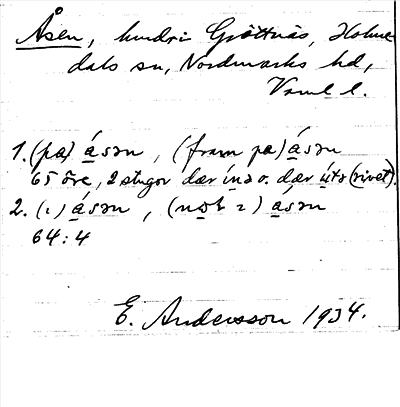 Åsen, hmdr i Gröttnäs, Holme-
dals sn, Nordmarks hd,
Verml. l.
1. (pa) ásən, (fram pa) ásən
65 öre, 2 stugor dær ínə o. dær útə (rivet).
2. (ı) ásən, (not ı) ásən
64:4
E. Andersson 1934.